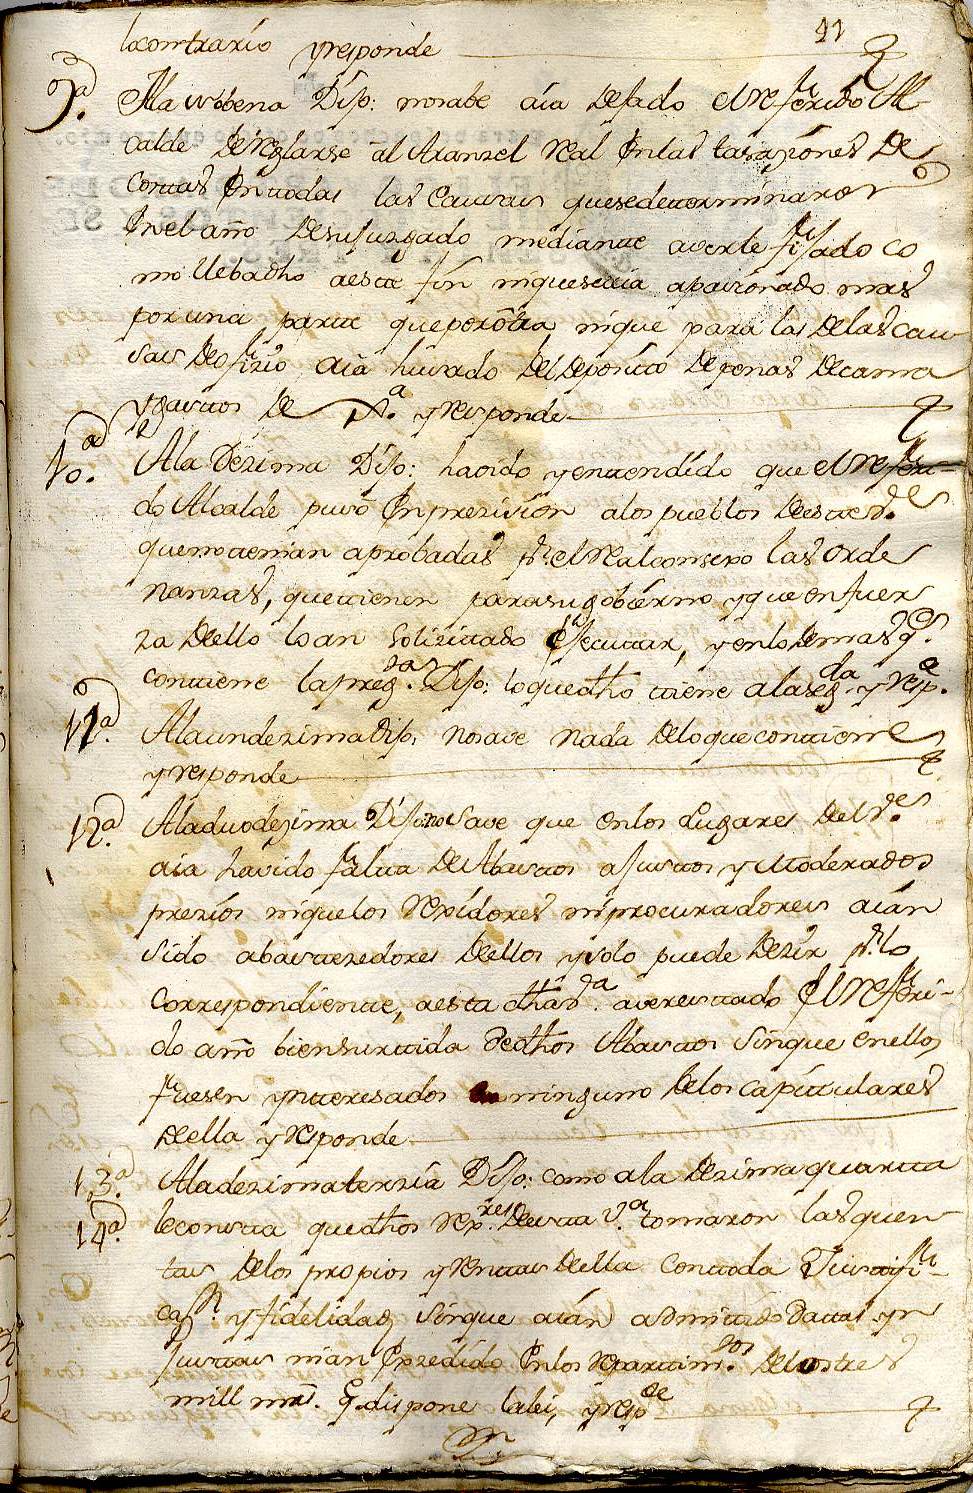 lo contrario y responde
41
9ª. A la nobena Dijo: no sabe aia dejado el referido Al
calde de Reglarse al Aranzel Real en las tasaziones de
costas en todas las causas que se determinaron
en el año de su juzgado mediante averle fijado co
mo llebadho a este fin ni que se aia apasionado mas
por una parte que por otra, ni que para las de las cau
sas de ofizio aia husado del Deposito de penas de cama
y gastos de Xª. y responde
10ª. A la Dezima Dijo: ha oido y entendido que el referi
do Alcalde puso en prezision a los pueblos de este
que no tenian aprobadas pr. el Real consexo las orde
nanzas, que tienen para su gobierno y que en fuer
za de ello lo an solizitado ejecutar, y en lo demas q.
contiene la preg.ta Dijo: lo que dho tiene a la seg.da y resp.e
11ª. A la undezima dijo, no save nada de lo que contiene
y responde
12ª. A la duodezima Dijo: no save que en los Lugares del
aia havido falta de Abastos a justos y Moderados
prezios ni que los Rexidores ni procuradores aian
sido abastezedores de ellos y solo puede dezir pr. lo
correspondiente, a esta dha averestado el referi-
do año bien surtida de dhos Abastos sin que en ellos
fuesen ynteresados ninguno de los capitulares
de ella y responde
13ª. A la dezima terzia Dijo: como a la dezima quarta
14ª. le consta que dhos Rex.res de esta v.ª tomaron las quen
tas de los propios y Rentas de ella con toda Justifi-
caz.n y fidelidad sin que aian admitido Datas yn
justas ni an Expedido en los Repartim.tos de los tres
mill mrs. q. dispone la lei, y resp.de